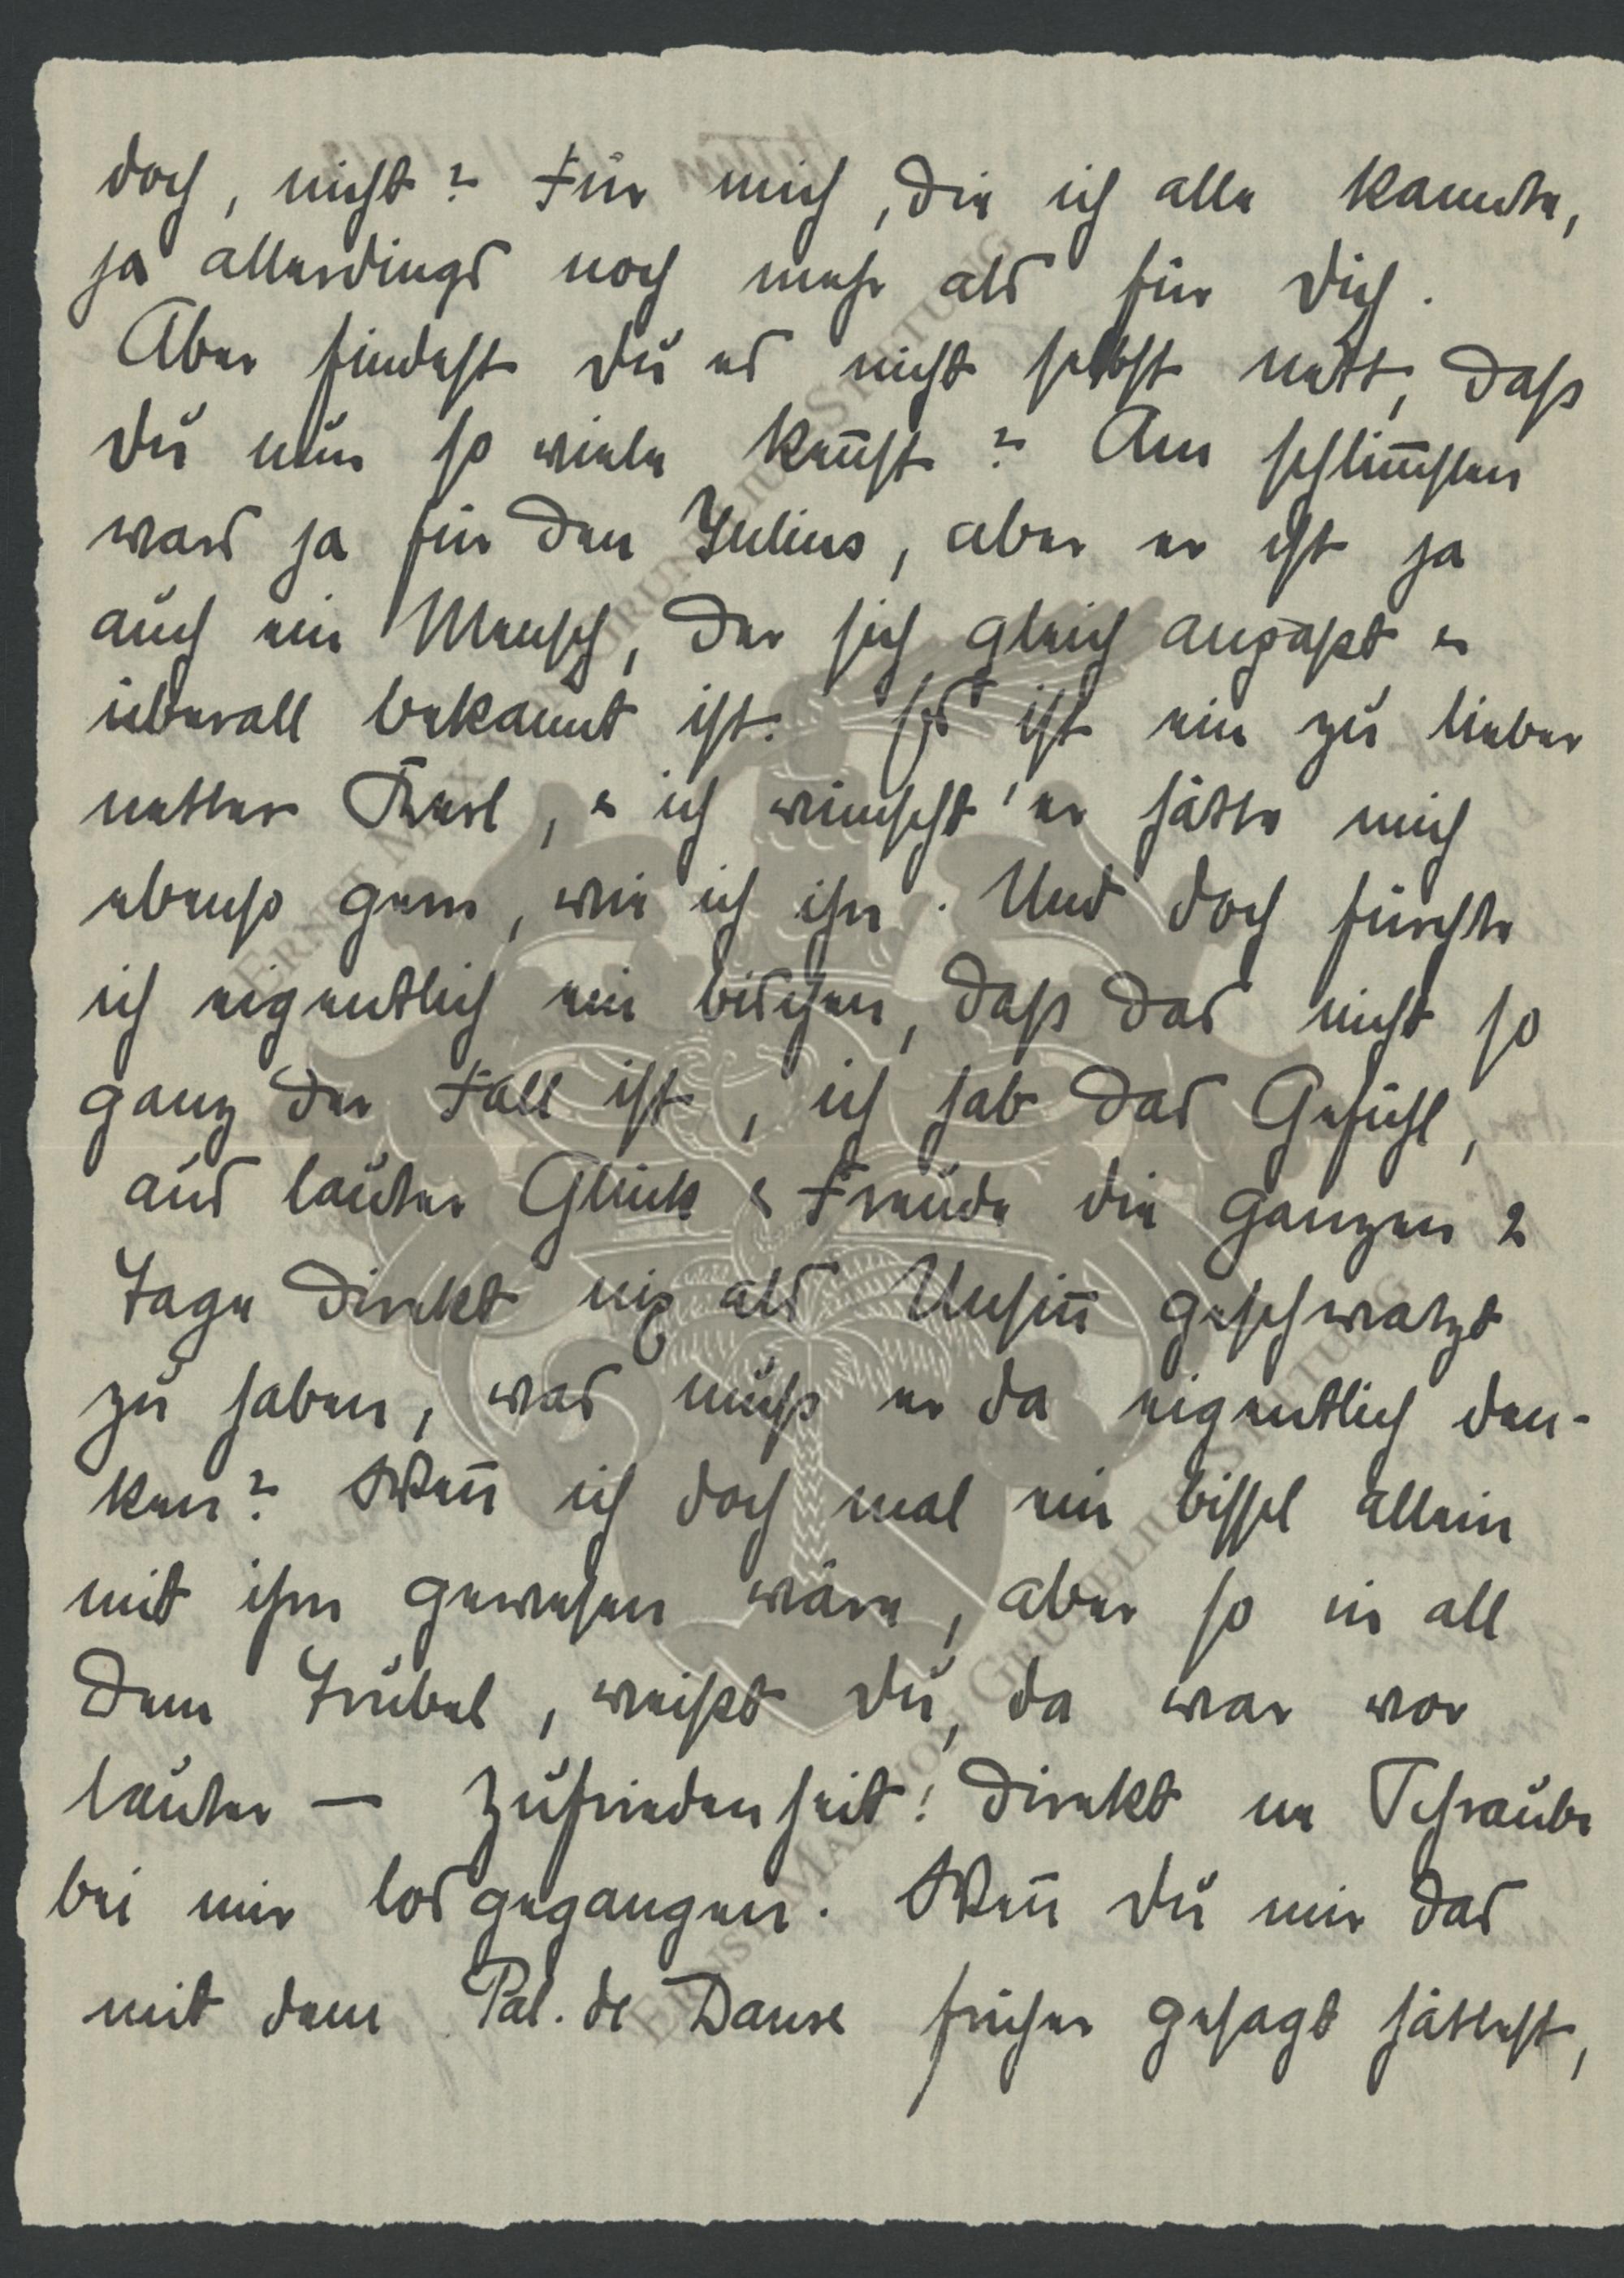 doch, nicht? Für mich, die ich alle kannte,
ja allerdings noch mehr als für Dich.
Aber findest Du es nicht selbst nett, daß
Du nun so viele kennst? Am schlimmsten
wars ja für den Julius, aber er ist ja
auch ein Mensch, der sich gleich anpaßt &
überall bekannt ist. Es ist ein zu lieber
netter Kerl, & ich wünscht' er hätte mich
ebenso gern, wie ich ihn. Und doch fürchte
ich eigentlich ein bischen, daß das nicht so
ganz der Fall ist, ich hab das Gefühl,
aus lauter Glück & Freude die ganzen 2
Tage direkt nix als Unsinn geschwatzt
zu haben, was muß er da eigentlich den-
ken? Wenn ich doch mal ein bissel allein
mit ihm gewesen wäre, aber so in all
dem Trubel, weißt Du, da war vor
lauter — Zufriedenheit! direkt ne Schraube
bei mir losgegangen. Wenn Du mir das
mit dem Pal. de Danse früher gesagt hättest,
ERNST MAX VON GRUNELIUS STIFTUNG
ERNST MAX VON GRUNELIUS STIFTUNG